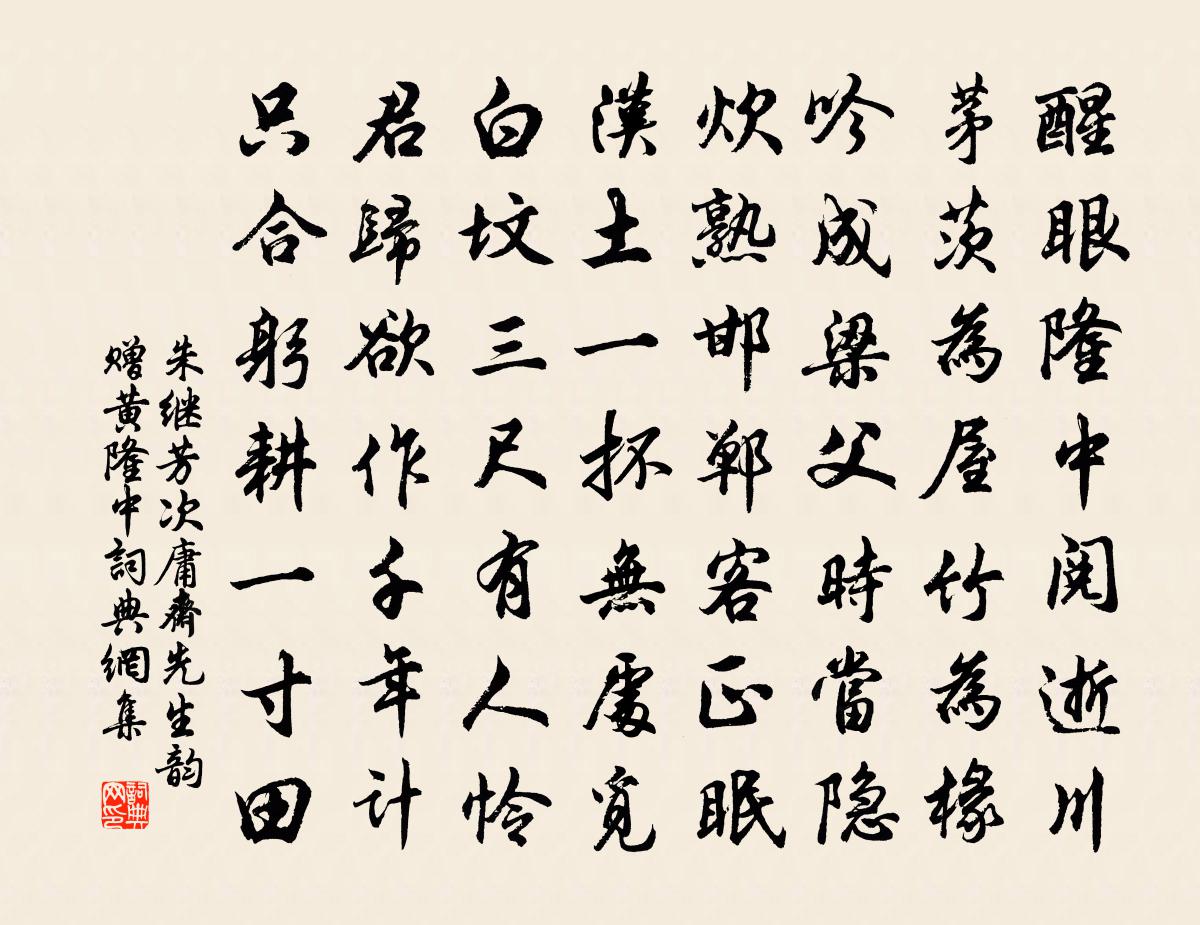 醒眼隆中閱逝川
茅茨為屋竹為椽
吟成梁父時當隐
炊熟邯鄲客正眠
漢土一抔無處覓
白墳三尺有人怜
君歸欲作千年计
只合躬耕一寸田
朱继芳次庸齋先生韵
赠黄隆中詞典網集
詞典
网印